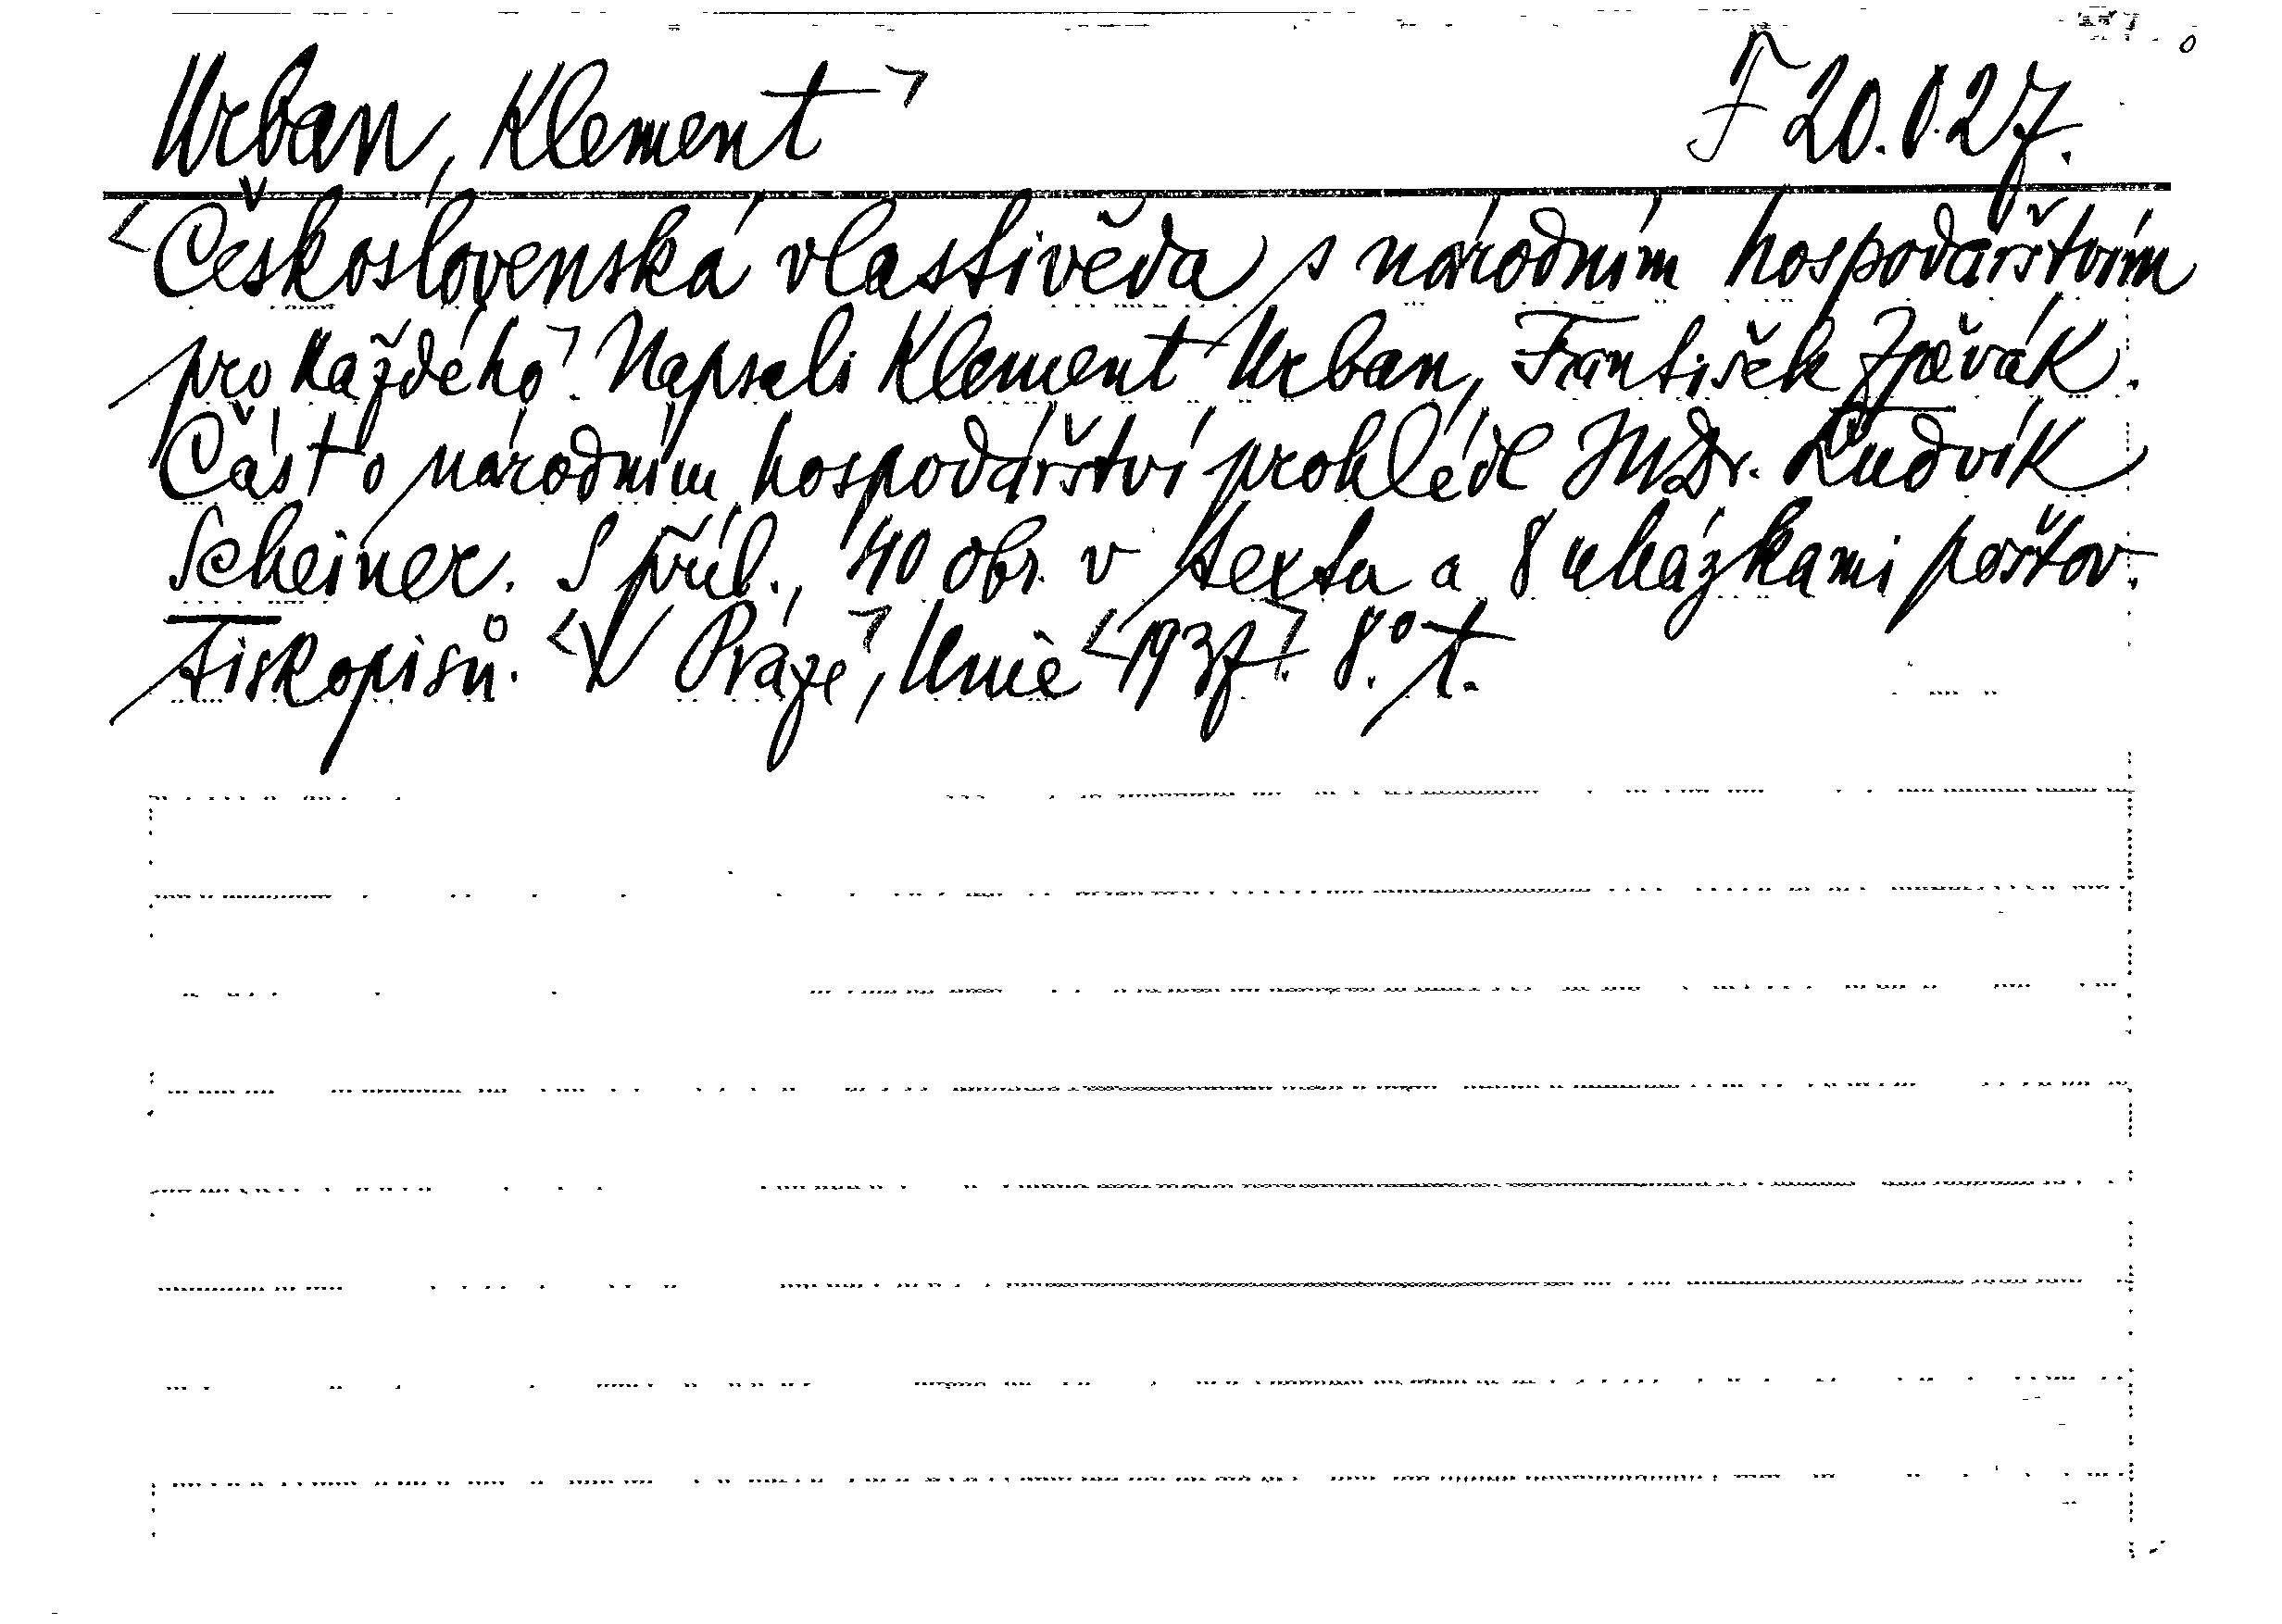 Urban, Klement ㄱ F 20.827.
<Československá vlastivěda s národním hospodářstvím
pro každého.ㄱ Napsali Klement Urban, František Zpěvák.
Část o národním hospodářství prohlédl JUDr. Ludvík
Scheiner. S příl., 40 obr. v textu a 8 ukázkami poštov.
tiskopisů. <V Prazeㄱ, Unie <1937ㄱ. 8.° T.